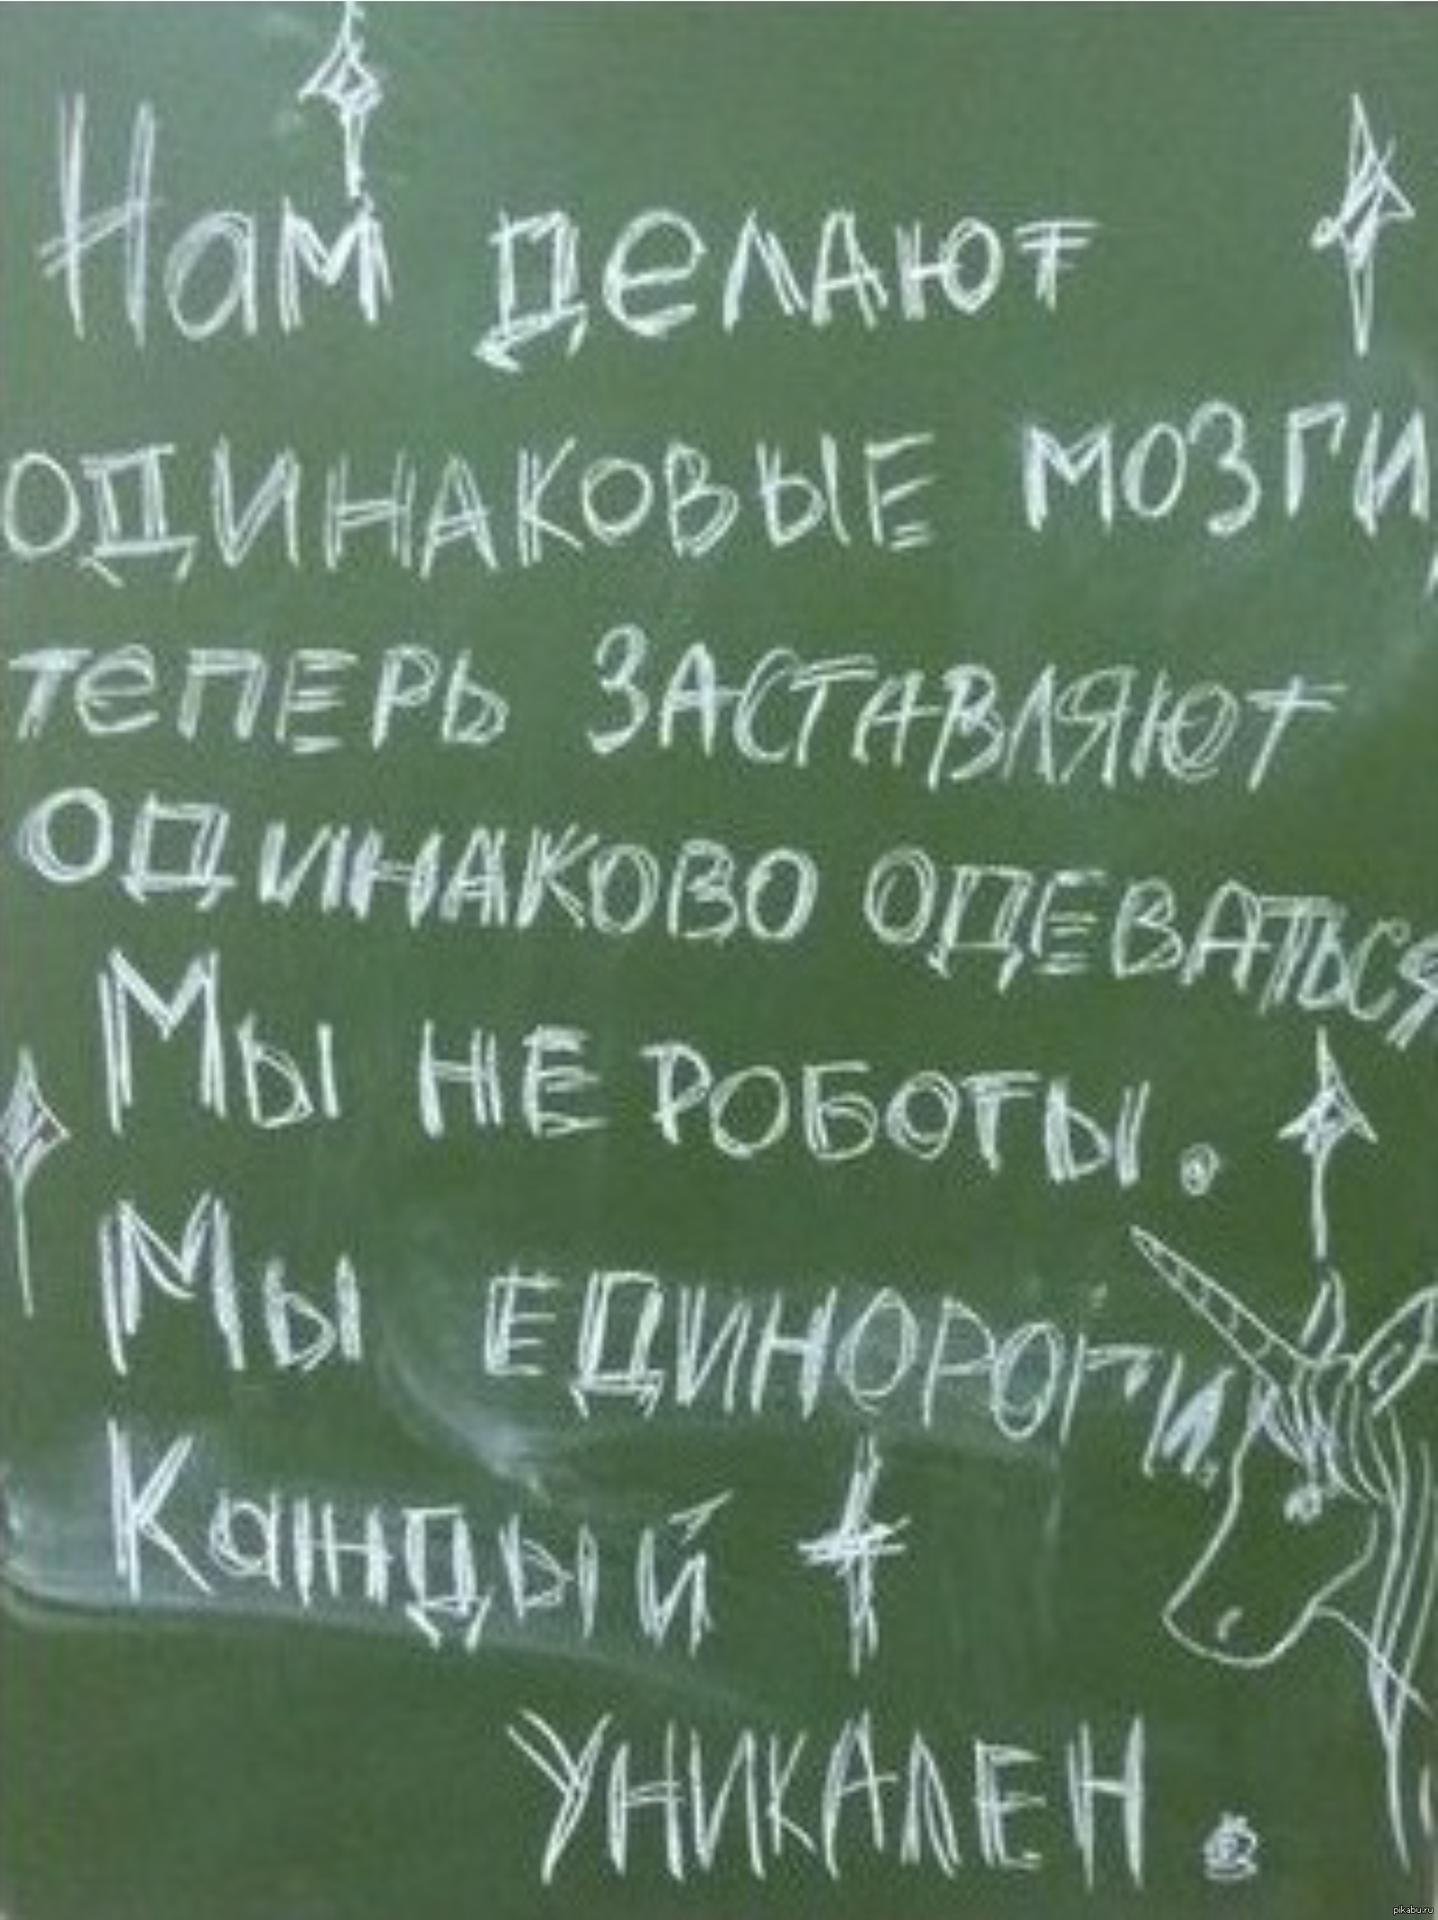 Нам делают
одинаковые мозги,
теперь заставляют
одинаково одеваться
Мы не роботы.
Мы единороги.
Каждый
уникален.
pikabu.ru